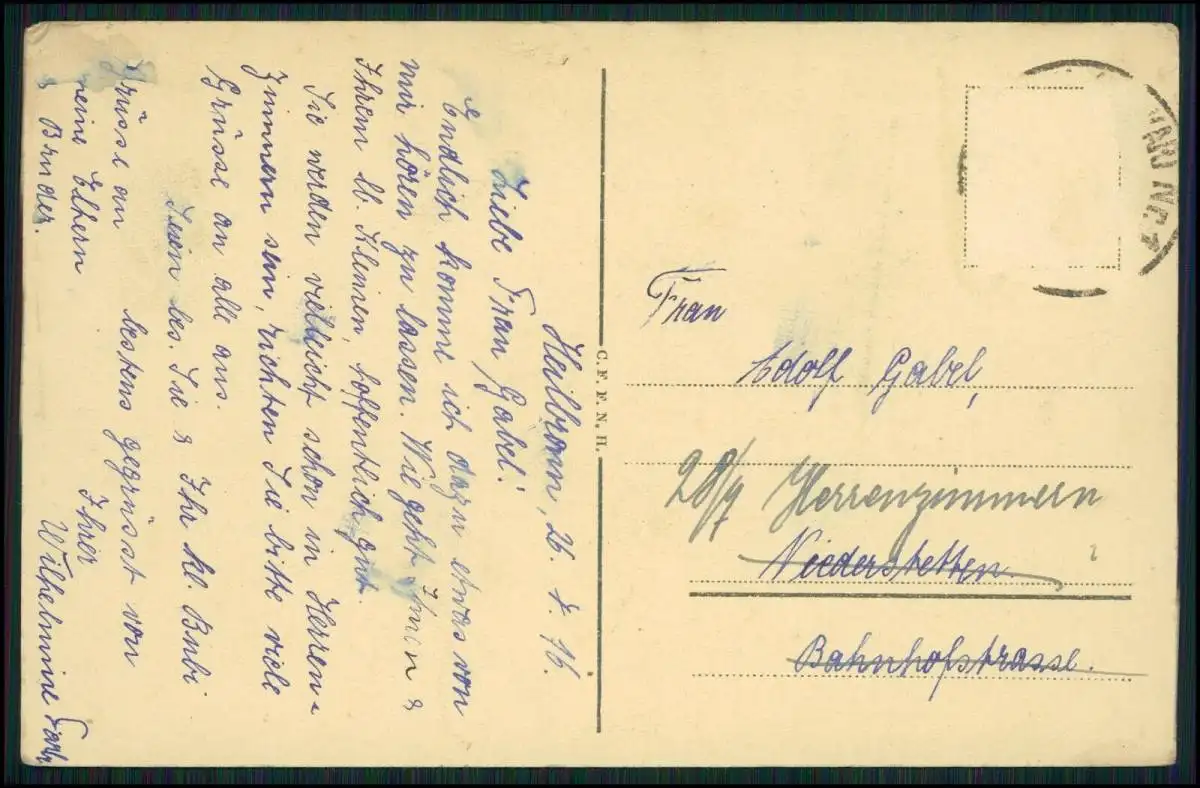 Heilbronn, 26. 7. 16.
Liebe Frau Gabel!
Endlich komme ich dazu etwas von
mir hören zu lassen. Wie geht Ihnen &
Ihrem lb. Kleinen, hoffentlich gut.
Sie werden vielleicht schon in Herren-
zimmern sein, richten Sie bitte viele
Grüsse an alle aus.
Seien bes. Sie & Ihr kl. Bubi
bestens gegrüsst von
Ihrer
Wilhelmine
Grüsse an
meine Eltern
& Bruder.
C. F. F. N. H.
Frau
Adolf Gabel,
28/7 Herrenzimmern
Niederstetten
Bahnhofstrasse.